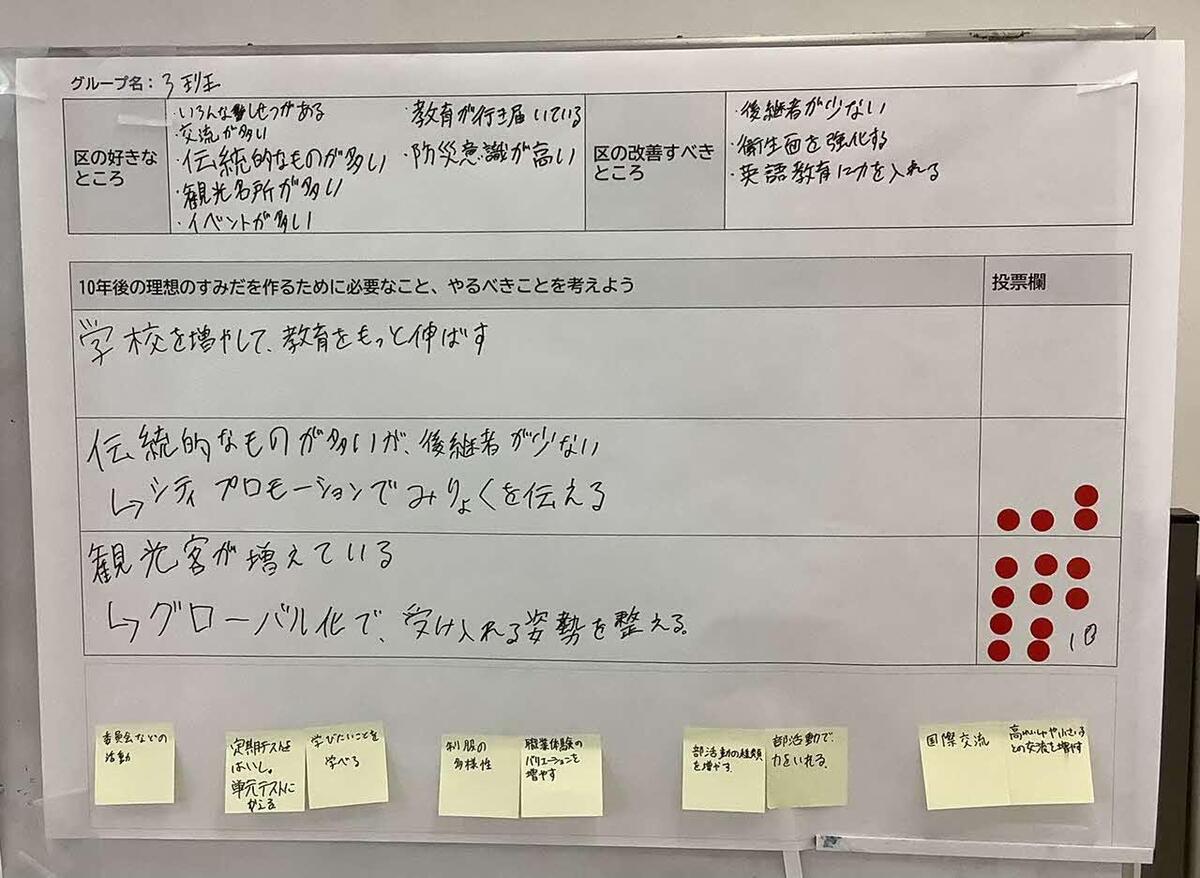 グループ名：3班
区の好きなところ
・いろんなしせつがある
・交流が多い
・伝統的なものが多い
・観光名所が多い
・イベントが多い
・教育が行き届いている
・防災意識が高い
区の改善すべきところ
・後継者が少ない
・衛生面を強化する
・英語教育に力を入れる
10年後の理想のすみだを作るために必要なこと、やるべきことを考えよう
投票欄
学校を増やして、教育をもっと伸ばす
伝統的なものが多いが、後継者が少ない
↳シティプロモーションでみりょくを伝える
観光客が増えている
↳グローバル化で、受け入れる姿勢を整える。
10
委員会などの
活動
定期テストを
はいし。
単元テストに
かえる
学びたいことを
学べる
制服の
多様性
職業体験の
バリエーションを
増やす
部活動の種類
を増やす
部活動で、
力をいれる。
国際交流
との交流を増やす